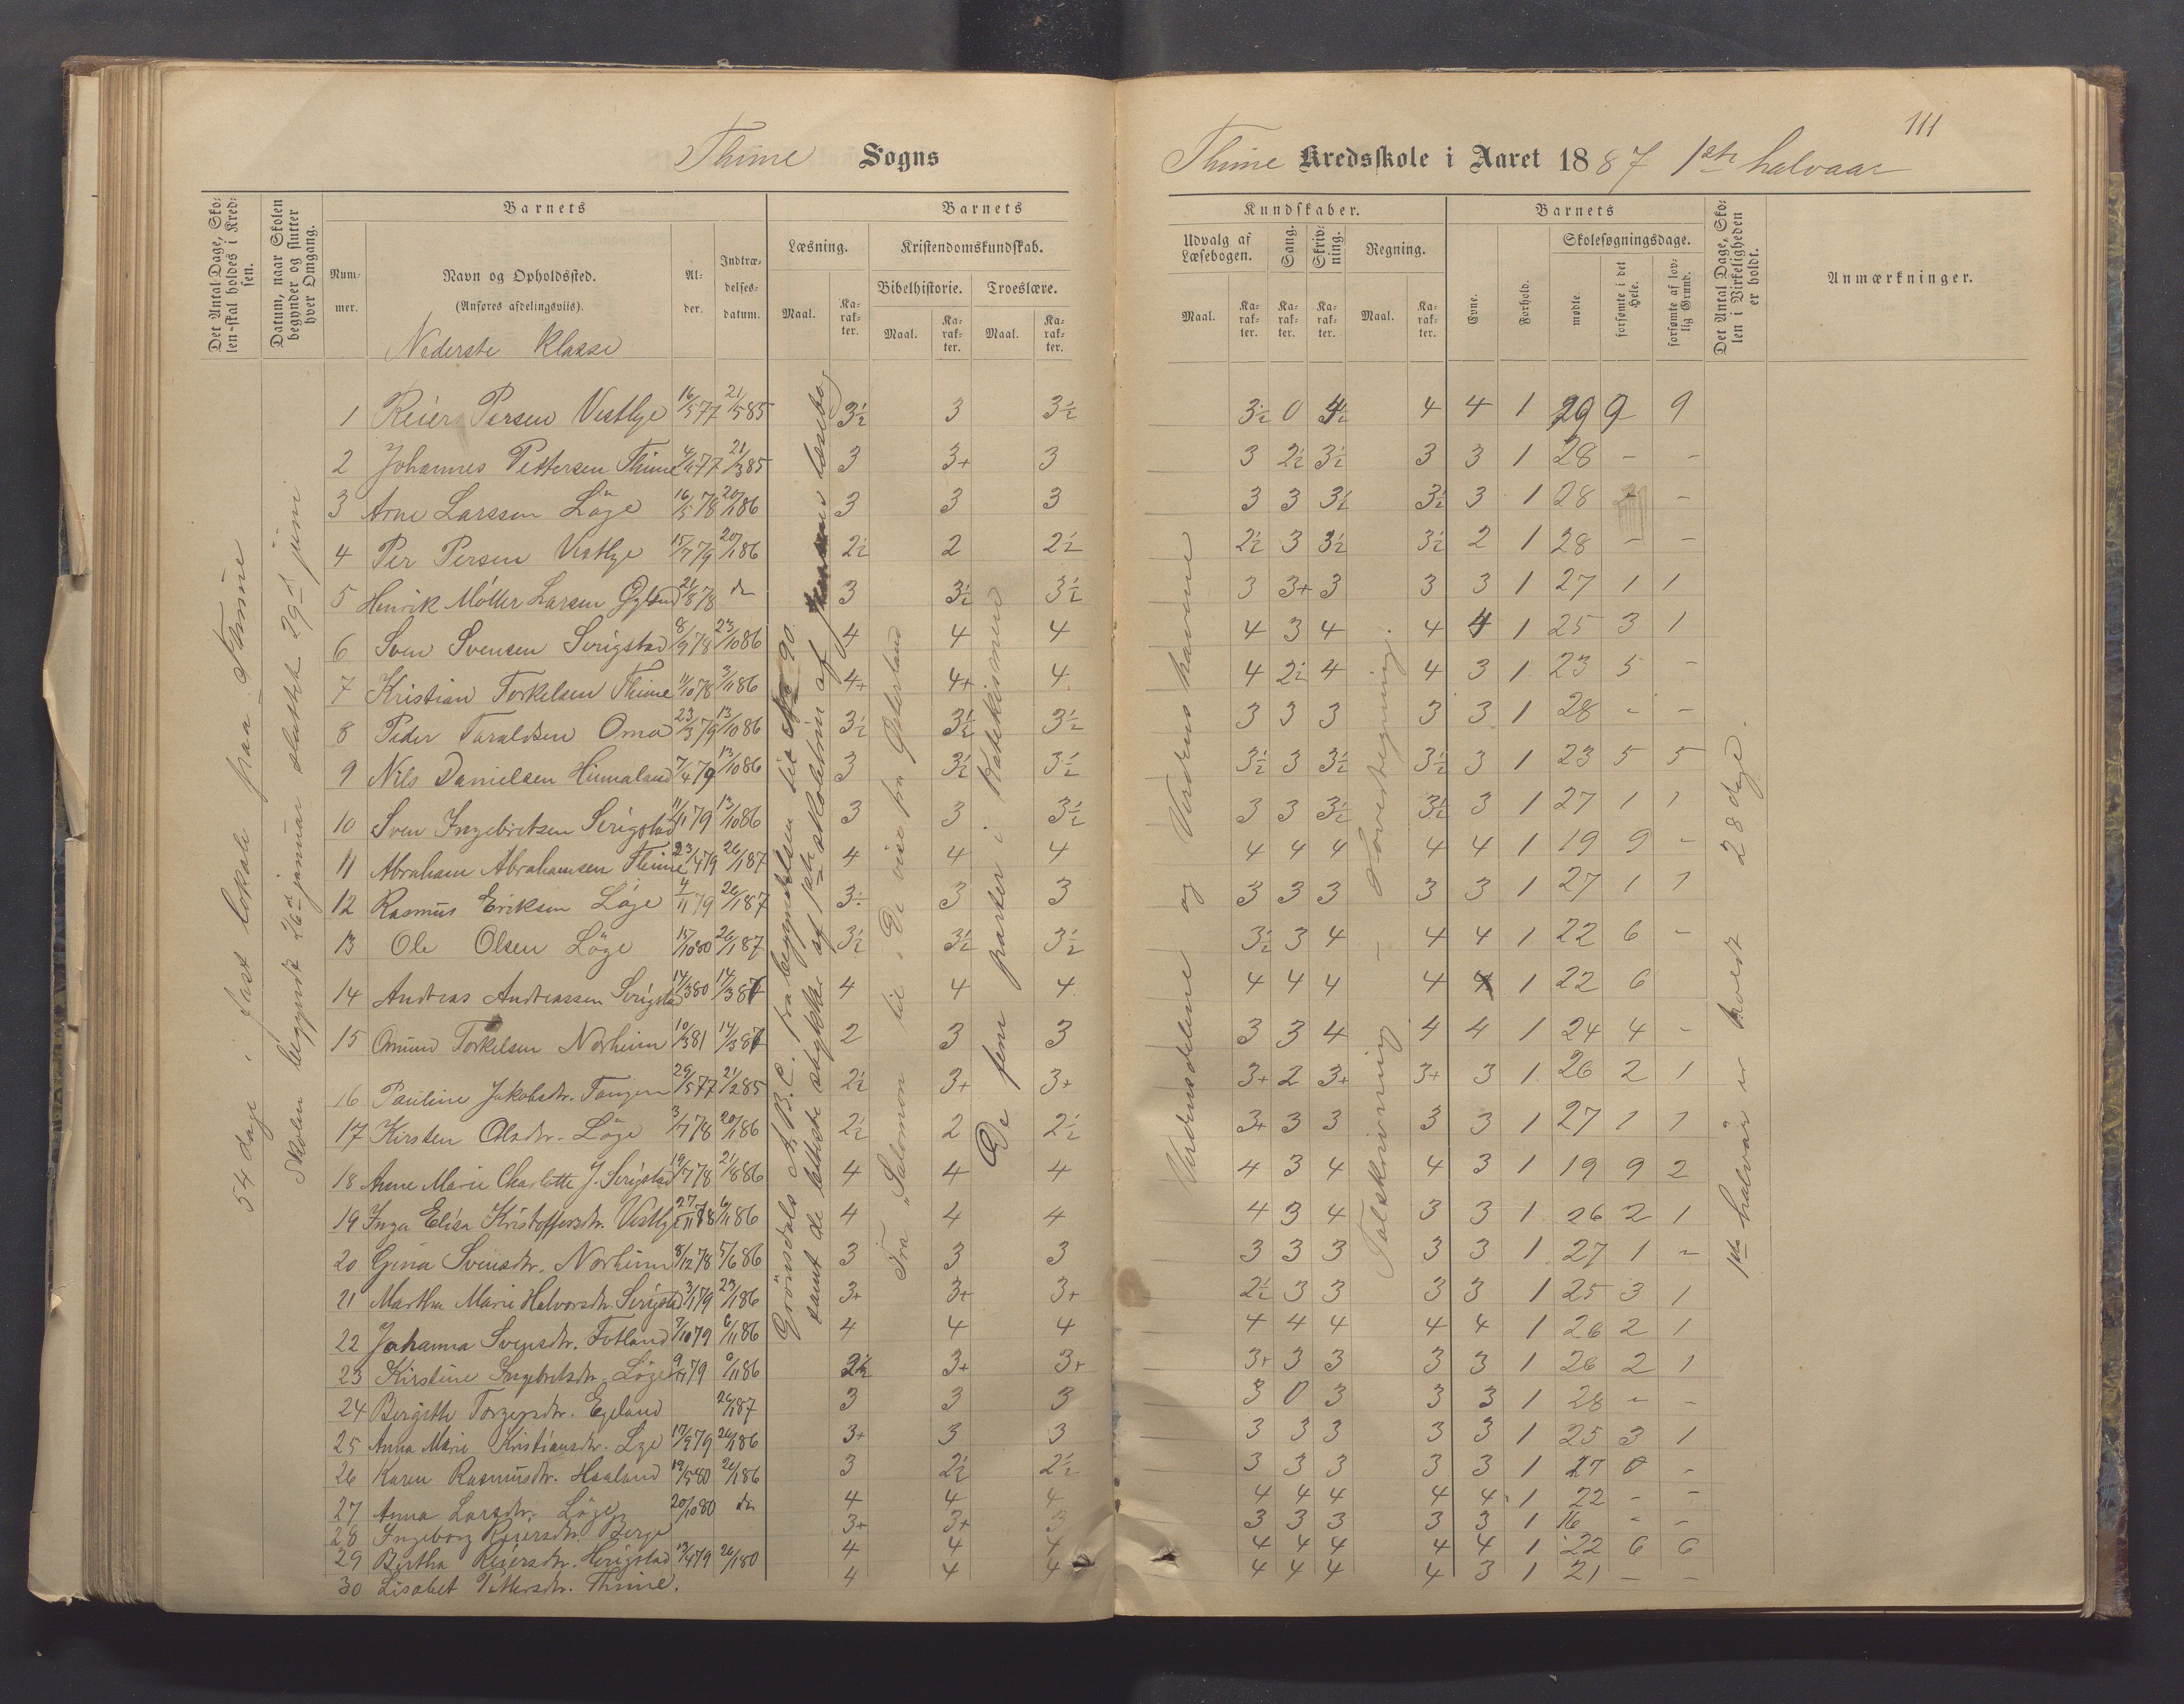 111
Thime Sogns
Thime Kredsskole i Aaret 1887 1ste halvaar
Det Antal Dage, Skolen skal holdes i Kredsen.
Datum, naar Skolen begynder og slutter hver Omgang.
Barnets
Nummer.
Navn og Opholdssted.
(Anføres afdelingsviis).
Alder.
Indtrædelsesdatum.
Barnets
Læsning.
Maal.
Karakter.
Kristendomskundskab.
Bibelhistorie.
Troeslære.
Maal.
Karakter.
Maal.
Karakter.
Kundskaber.
Udvalg af Læsebogen.
Maal.
Karakter.
Sang.
Karakter.
Skrivning.
Karakter.
Regning.
Maal.
Karakter.
Barnets
Evne.
Forhold.
Skolesøgningsdage.
mødte.
forsømte i det Hele.
forsømte af lovlig Grund.
Det Antal Dage, Skolen i Virkeligheden er holdt.
Anmærkninger.
Nederste Klasse
54 dage i fast lokale paa Thime
Skolen begyndt 26de januar sluttet 29de juni
Grönsdals A.B.C. fra begyndelsen til No 90.
samt de letteste stykker af 1ste skoletrin af læsebog
Fra "Salomon til "De vise fra Østerland
De fem parter i Katekismen
Verdensdelene og Verdens havene
Talskrivning – Hovedregning.
1ste halvår er holdt 28 dage.
1 Reier Persen Vestlye 16/5 77 21/5 85 3½ 3 3½ 3½ 0 4½ 4 4 1 29 9 9
2 Johannes Pettersen Thime 77 21/3 85 3 3+ 3 3 2½ 3½ 3 3 1 28 – –
3 Arne Larssen Löge 16/5 78 20/1 86 3 3 3 3 3 3½ 3½ 3 1 28 – –
4 Per Persen Vestlye 15/7 79 20/1 86 2½ 2 2½ 2½ 3 3½ 3½ 2 1 28 – –
5 Henrik Möller Larsen 21/8 78 do 3 3½ 3½ 3 3+ 3 3 3 1 27 1 1
6 Sven Svensen Serigstad 8/9 78 23/10 86 4 4 4 4 3 4 4 4 1 25 3 1
7 Kristian Torkelsen Thime 11/10 78 3/11 86 4+ 4+ 4 4 2½ 4 4 3 1 23 5 –
8 Peder Taraldsen Oma 23/3 79 13/10 86 3½ 3½ 3½ 3 3 3 3 3 1 28 – –
9 Nils Danielsen Hinnaland 7/4 79 13/10 86 3 3½ 3½ 3½ 3 3½ 3½ 3 1 23 5 5
10 Sven Ingebretsen Serigstad 11/11 79 13/10 86 3 3 3½ 3 3 3½ 3½ 3 1 27 1 1
11 Abraham Abrahamsen Thime 23/4 79 26/1 87 4 4 4 4 4 4 4 4 1 19 9 –
12 Rasmus Eriksen Löge 4/11 79 26/1 87 3½ 3 3 3 3 3 3 3 1 27 1 1
13 Ole Olsen Löge 15/10 80 26/1 87 3½ 3½ 3½ 3½ 3 4 4 4 1 22 6 –
14 Andreas Andreassen Serigstad 14/3 80 14/3 87 4 4 4 4 4 4 4 4 1 22 6
15 Omund Torkelsen Norheim 10/3 81 14/3 87 2 3 3 3 3 4 4 4 1 24 4 –
16 Pauline Jakobsdtr. Tangen 29/5 77 21/2 85 2½ 3+ 3+ 3+ 2 3+ 3+ 3 1 26 2 1
17 Kirsten Olsdtr. Löge 3/7 78 20/1 86 2½ 2 2½ 3+ 3 3 3 3 1 27 1 1
18 Anne Marie Charlotte J. Serigstad 19/7 78 21/8 86 4 4 4 4 3 4 4 3 1 19 9 2
19 Inga Elisa Kristoffersdtr. Vestlye 27/11 78 6/11 86 4 4 4 4 3 4 3 3 1 26 2 1
20 Gina Svensdtr. Norheim 8/12 78 5/6 86 3 3 3 3 3 3 3 3 1 27 1 –
21 Martha Marie Halvorsdtr. Serigstad 3/1 79 23/1 86 3+ 3+ 3+ 2½ 3 3 3 3 1 25 3 1
22 Johanna Svensdtr. Fotland 7/10 79 6/11 86 4 4 4 4 4 4 4 4 1 26 2 1
23 Kirstine Ingebretsdtr. Löge 79 6/11 86 2½ 3+ 3+ 3+ 3 3 3 3 1 26 2 1
24 Bergitte Torgersdtr. Egeland 26/1 87 3 3 3 3 0 3 3 3 1 28 – –
25 Anna Marie Kristiansdtr. Lye 17/9 79 26/1 86 3+ 3 3 3 3 3 3 3 1 25 3 1
26 Karen Rasmusdtr. Haaland 19/5 80 26/1 86 3 2½ 2½ 3 3 3 3 3 1 27 0 –
27 Anna Larsdtr. Löge 20/10 80 do 4 4 4 4 4 4 4 4 1 22 – –
28 Ingeborg Reiersdtr. 3+ 3+ 3 3 3 3 3 3 1 16 – –
29 Bertha Reiersdtr. Herigstad 13/4 79 26/1 80 4 4 4 4 4 4 4 4 1 22 6 6
30 Lisabet Pettersdtr. Thime. 4 4 4 4 4 4 4 3 1 21 – –